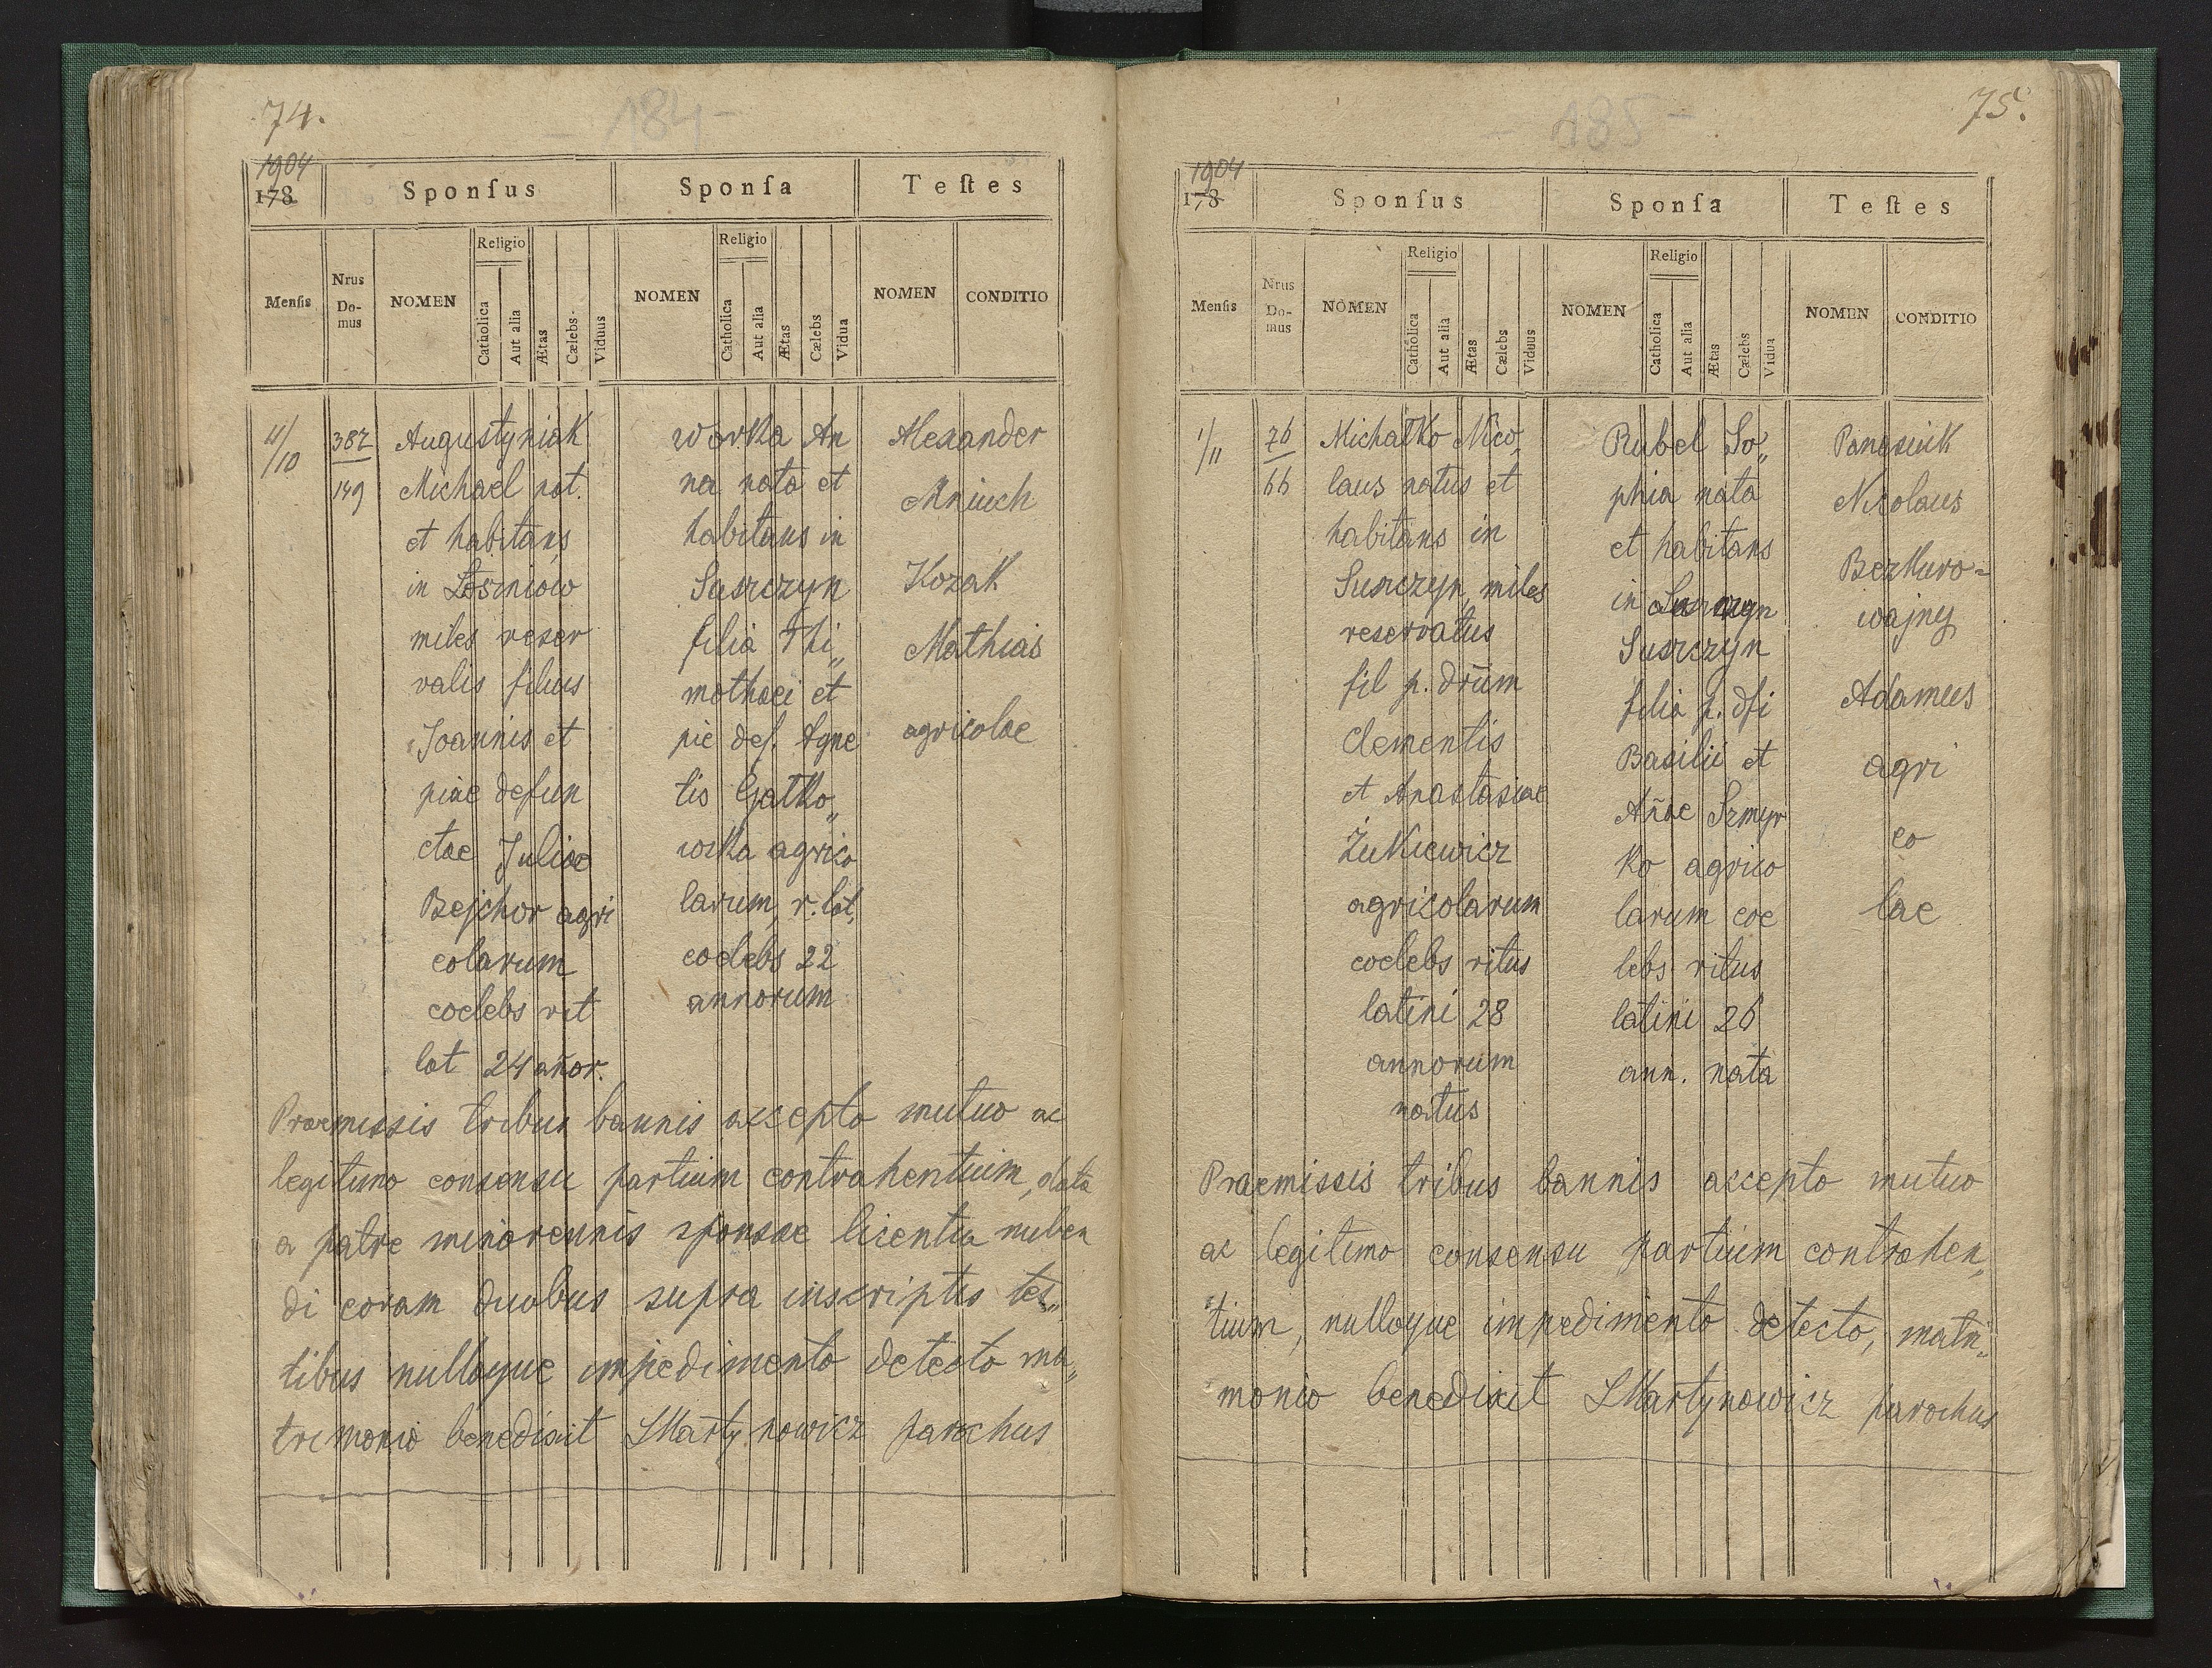 74.
- 184 -
1904
178
Sponſus
Sponſa
Teſtes
Menſis
Nrus Do-mus
NOMEN
Religio
Catholica
Aut alia
Ætas
Cælebs
Viduus
NOMEN
Religio
Catholica
Aut alia
Ætas
Cælebs
Vidua
NOMEN
CONDITIO
11/10
387
149
Augustyniak
Michael nat.
et habitans
in Łośniów
miles reser
valis filius
Joannis et
piae defun
ctae Juliae
Bejchor agri
colarum
coelebs rit
lat 24 añor.
Worka An
na nata et
habitans in
Susrczyn
filia Thi„
mothaei et
pie def. Agne
tis Gatko„
wska agrico
larum, r. lat,
coelebs 22
annorum
Alexander
Mniuch
Kozak
Mathias
agricolae
Praemissis tribus bannis accepto mutuo ac
legitimo consensu partium contrahentium, data
a patre minorennis sponsae licentia nuben
di coram duobus supra inscriptis tes„
tibus nulloque impedimento detecto ma„
trimonio benedixit SMartynowicz parochus
75.
- 185 -
1904
178
Sponſus
Sponſa
Teſtes
Menſis
Nrus Do-mus
NOMEN
Religio
Catholica
Aut alia
Ætas
Cælebs
Viduus
NOMEN
Religio
Catholica
Aut alia
Ætas
Cælebs
Vidua
NOMEN
CONDITIO
1/11
76
66
Michałko Nico„
laus natus et
habitans in
Susrczyn, miles
reservatus
fil p. drum
Clementis
et Anastasiae
Żukiewicz
agricolarum
coelebs ritus
latini 28
annorum
natus
Rubel So„
phia nata
et habitans
in
Susrczyn
filia p. dfi
Basilii et
Añae Szmyr
ko agrico
larum coe
lebs ritus
latini 26
ann. nata
Panasiuk
Nicolaus
Bezkoro-
wajny
Adamus
agri
co
lae
Praemissis tribus bannis accepto mutuo
ac legitimo consensu partium contrahen„
tium, nulloque impedimento detecto, matri„
monio benedixit SMartynowicz parochus